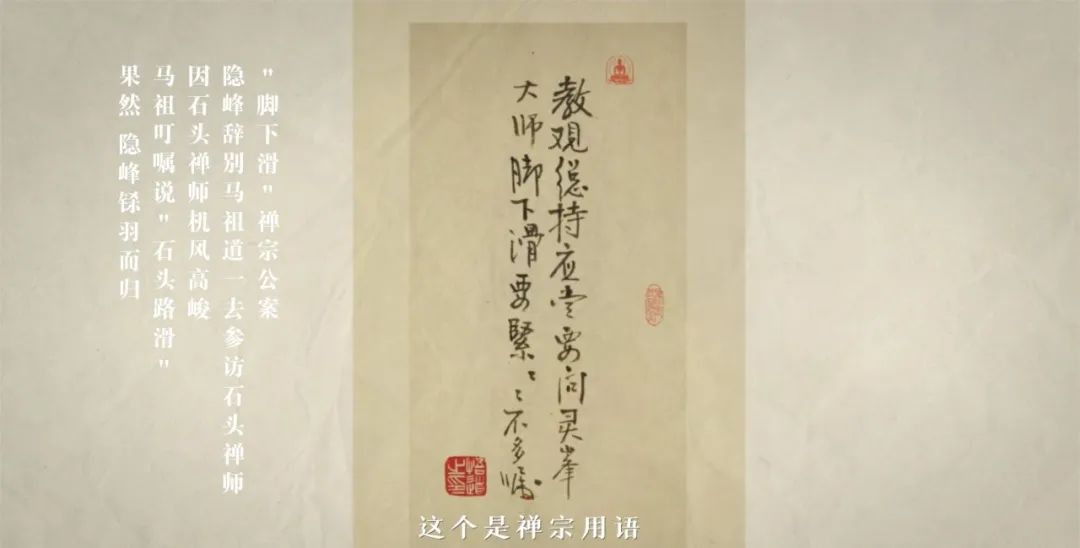 "脚下滑"禅宗公案
隐峰辞别马祖道一去参访石头禅师
因石头禅师机风高峻
马祖叮嘱说"石头路滑"
果然 隐峰铩羽而归
教观总持应当要问灵峯
大师脚下滑要緊〻〻不多嘱
这个是禅宗用语